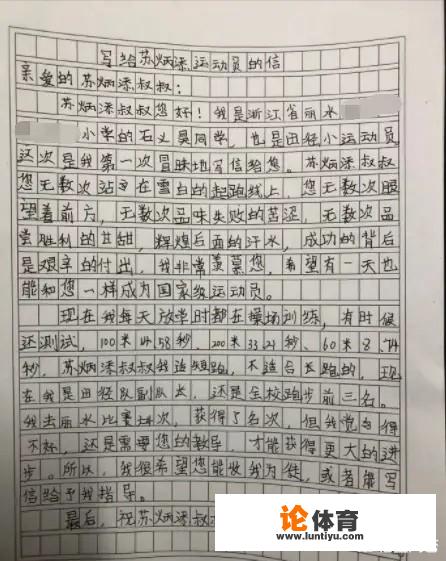 写给苏炳添运动员的信
亲爱的苏炳添叔叔：
苏炳添叔叔您好！我是浙江省丽水
小学的石义昊同学，也是田径小运动员。
这次是我第一次冒昧地写信给您。苏炳添叔叔
您无数次站在雪白的起跑线上，您无数次眼
望着前方，无数次品味失败的苦涩，无数次品
尝胜利的甘甜，辉煌后面的汗水，成功的背后
是艰辛的付出，我非常羡慕您，希望有一天也
能和您一样成为国家级运动员。
现在我每天放学时都在操场训练，有时候
还测试，100米14.58秒、200米33.21秒、60米8.74
秒，苏炳添叔叔我适短跑，不适合长跑的，现
在我是田径队副队长，还是全校跑步前三名。
我去丽水比赛 次，获得了名次，但我觉自得
不够，还是需要您的教导，才能获得更大的进
步。所以，我很希望您能收我为徒，或者能写
信给予我指导。
最后，祝苏炳添叔
论体育
www.luntiyu.com